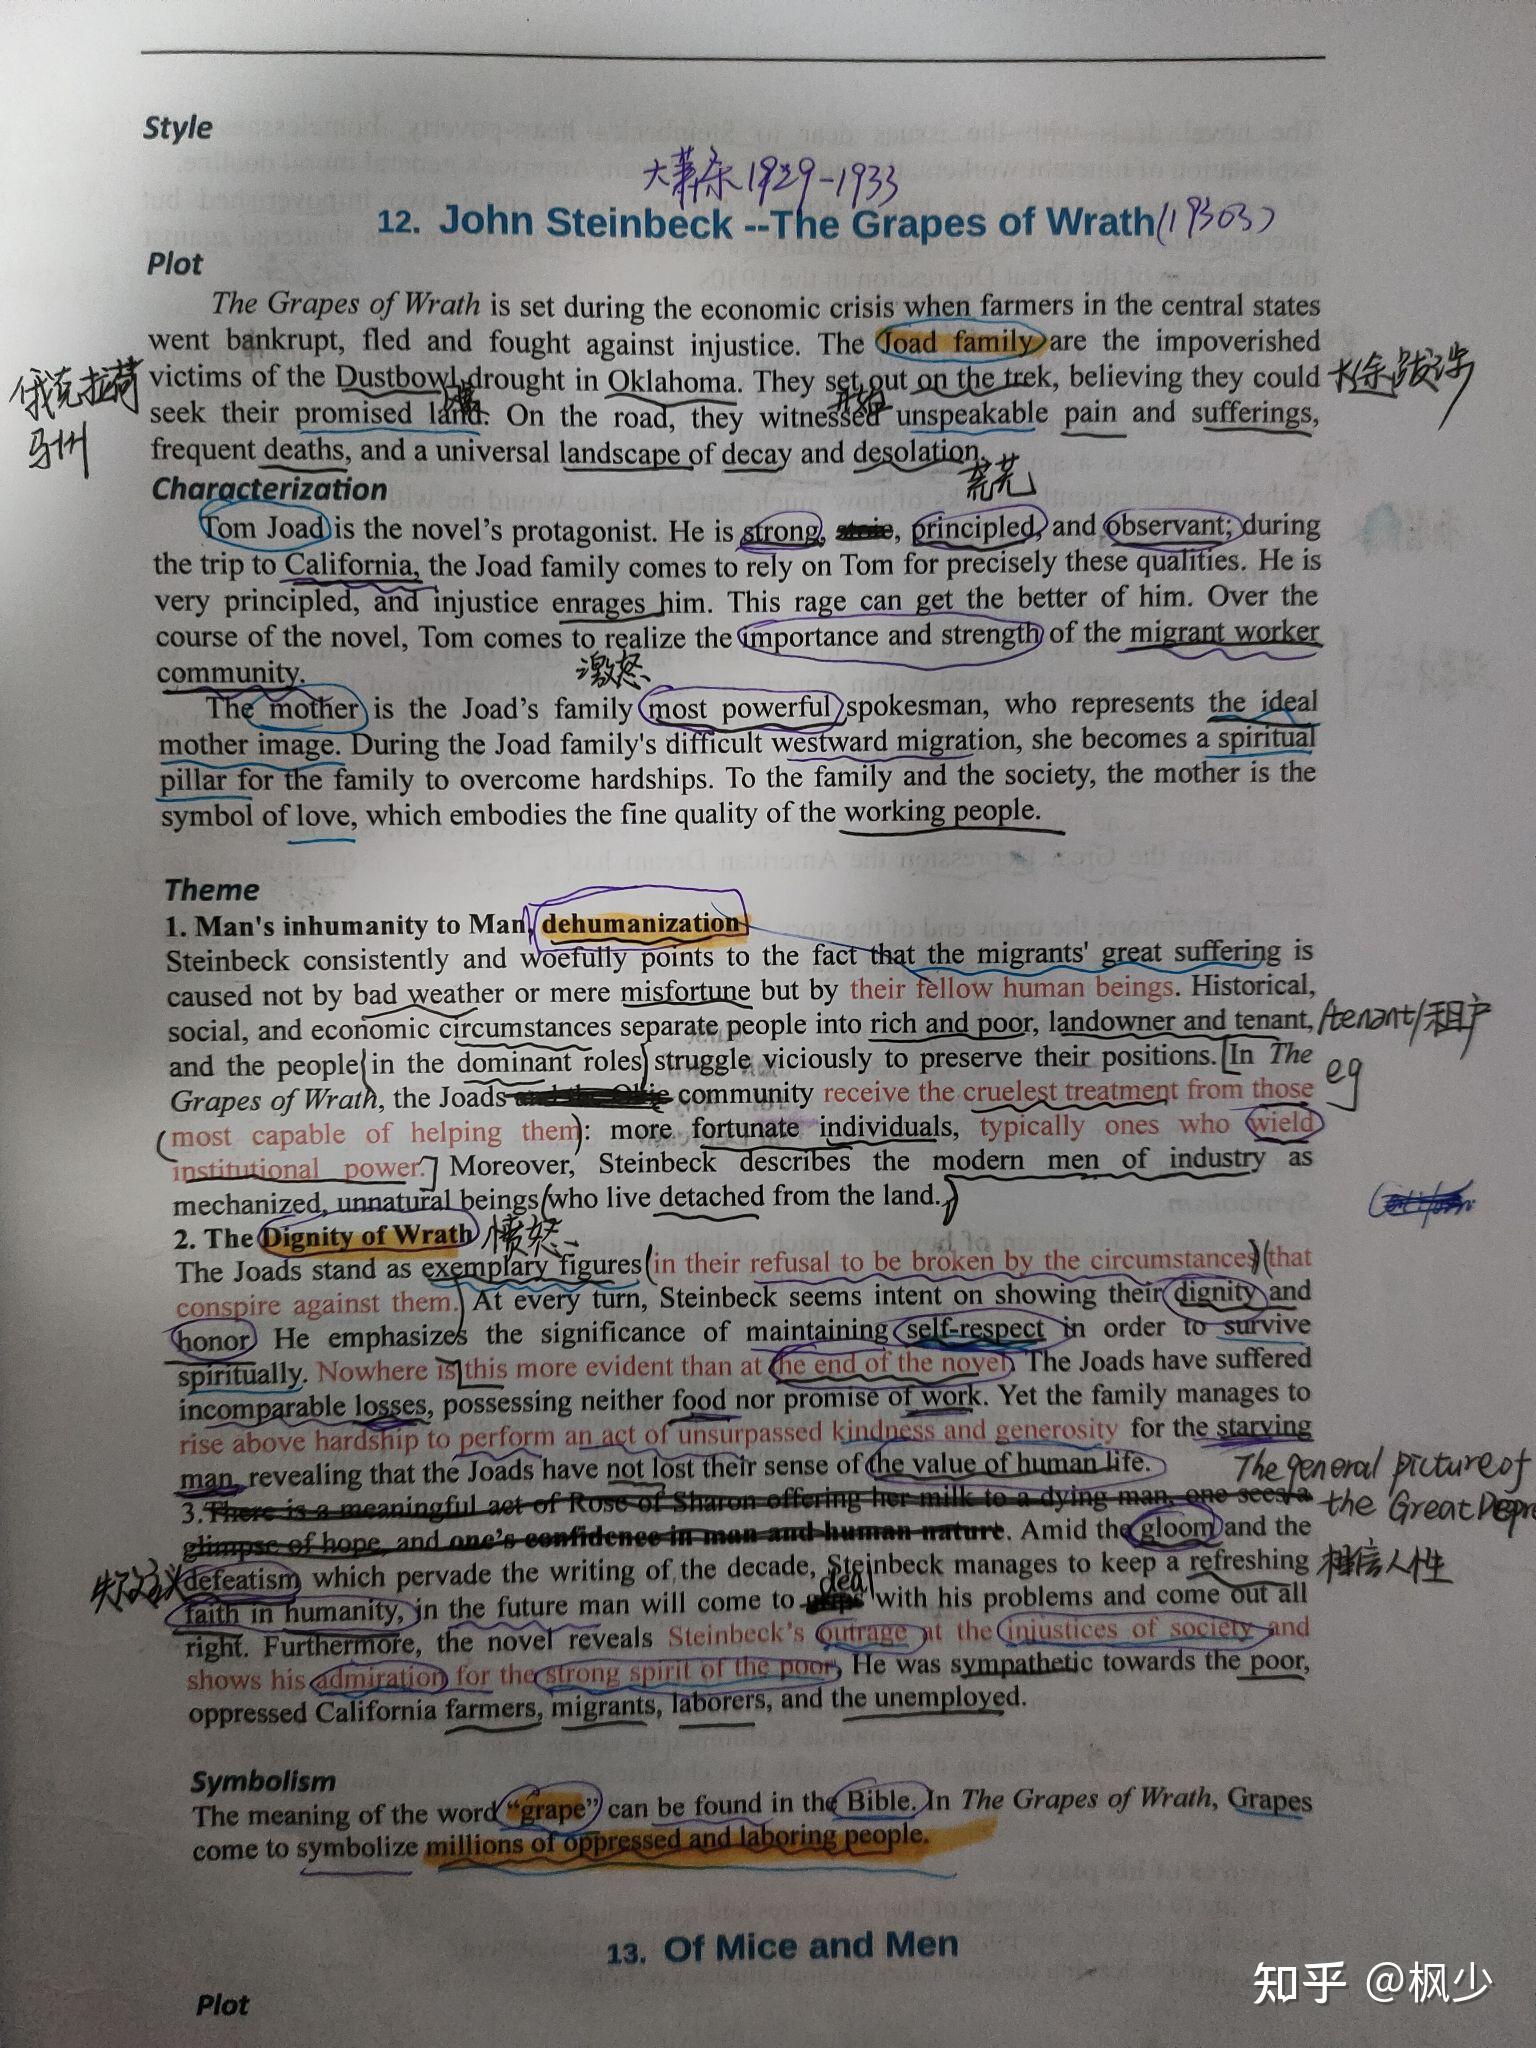 Style
大萧条1929-1933
12. John Steinbeck --The Grapes of Wrath (1930s)
Plot
The Grapes of Wrath is set during the economic crisis when farmers in the central states
went bankrupt, fled and fought against injustice. The Joad family are the impoverished
victims of the Dustbowl drought in Oklahoma. They set out on the trek, believing they could 长途跋涉
俄克拉荷
马州
开始
seek their promised land. On the road, they witnessed unspeakable pain and sufferings,
frequent deaths, and a universal landscape of decay and desolation.
荒芜
Characterization
Tom Joad is the novel's protagonist. He is strong, stoic, principled, and observant; during
the trip to California, the Joad family comes to rely on Tom for precisely these qualities. He is
very principled, and injustice enrages him. This rage can get the better of him. Over the
course of the novel, Tom comes to realize the importance and strength of the migrant worker
community.
激怒
The mother is the Joad's family most powerful spokesman, who represents the ideal
mother image. During the Joad family's difficult westward migration, she becomes a spiritual
pillar for the family to overcome hardships. To the family and the society, the mother is the
symbol of love, which embodies the fine quality of the working people.
Theme
1. Man's inhumanity to Man, dehumanization
Steinbeck consistently and woefully points to the fact that the migrants' great suffering is
caused not by bad weather or mere misfortune but by their fellow human beings. Historical,
social, and economic circumstances separate people into rich and poor, landowner and tenant, /tenant/租户
and the people in the dominant roles struggle viciously to preserve their positions. In The eg
Grapes of Wrath, the Joads and the Okie community receive the cruelest treatment from those
most capable of helping them: more fortunate individuals, typically ones who wield
institutional power. Moreover, Steinbeck describes the modern men of industry as
mechanized, unnatural beings who live detached from the land.
2. The Dignity of Wrath 愤怒
The Joads stand as exemplary figures in their refusal to be broken by the circumstances that
conspire against them. At every turn, Steinbeck seems intent on showing their dignity and
honor. He emphasizes the significance of maintaining self-respect in order to survive
spiritually. Nowhere is this more evident than at the end of the novel. The Joads have suffered
incomparable losses, possessing neither food nor promise of work. Yet the family manages to
rise above hardship to perform an act of unsurpassed kindness and generosity for the starving
man, revealing that the Joads have not lost their sense of the value of human life.
The general picture of
the Great Depre
3. There is a meaningful act of Rose of Sharon offering her milk to a dying man, one sees a
glimpse of hope, and one's confidence in man and human nature. Amid the gloom and the
失败主义 defeatism which pervade the writing of the decade, Steinbeck manages to keep a refreshing 相信人性
deal
faith in humanity, in the future man will come to with his problems and come out all
right. Furthermore, the novel reveals Steinbeck's outrage at the injustices of society and
shows his admiration for the strong spirit of the poor. He was sympathetic towards the poor,
oppressed California farmers, migrants, laborers, and the unemployed.
Symbolism
The meaning of the word "grape" can be found in the Bible. In The Grapes of Wrath, Grapes
come to symbolize millions of oppressed and laboring people.
13. Of Mice and Men
Plot
知乎 @枫少